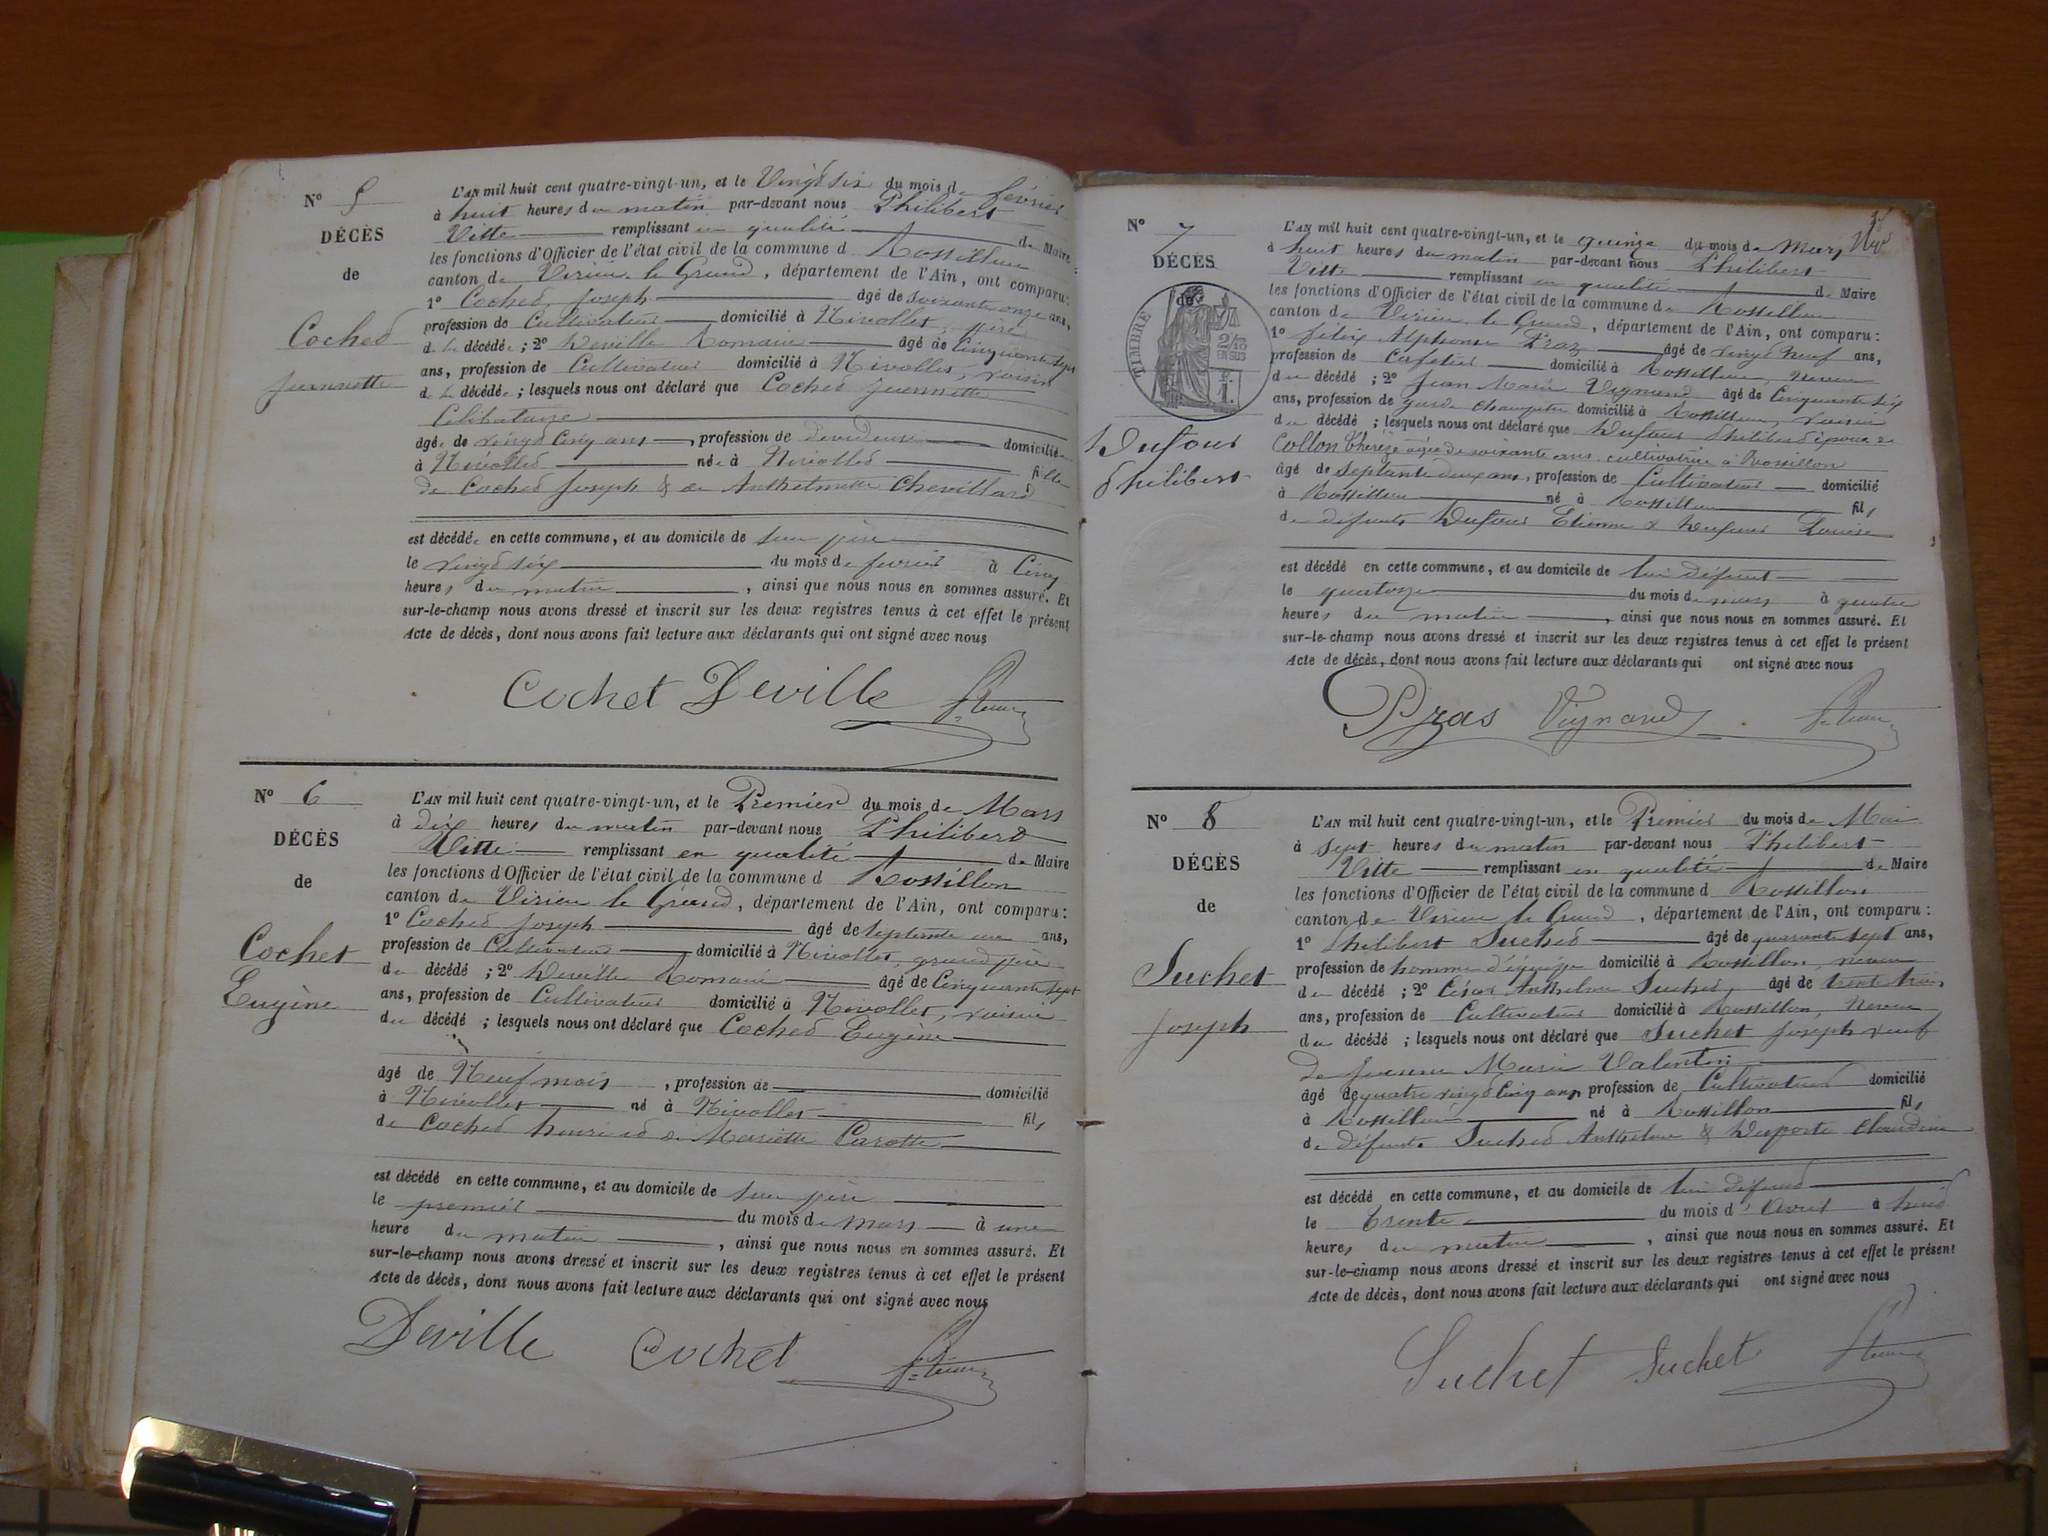 N° 5
DÉCÈS
de
Cochet
Jeannette
L'AN mil huit cent quatre-vingt-un, et le Vingt six du mois de février
à huit heures du matin par-devant nous Philibert
Vitte remplissant en qualité de Maire
les fonctions d'Officier de l'état civil de la commune d Rossillon
canton de Virieu le Grand, département de l'Ain, ont comparu:
1° Cochet Joseph âgé de soixante onze ans,
profession de Cultivateur domicilié à Nivollet, père
de la décédée; 2° Deville Romain âgé de Cinquante sept
ans, profession de Cultivateur domicilié à Nivollet, voisin
de la décédée; lesquels nous ont déclaré que Cochet Jeannette
Célibataire
âgée de vingt cinq ans, profession de devideuse domiciliée
à Nivollet née à Nivollet fille
de Cochet Joseph & de Anthelmette Chevillard
est décédée en cette commune, et au domicile de son père
le vingt six du mois de février à Cinq
heures du matin, ainsi que nous nous en sommes assuré. Et
sur-le-champ nous avons dressé et inscrit sur les deux registres tenus à cet effet le présent
Acte de décès, dont nous avons fait lecture aux déclarants qui ont signé avec nous
Cochet Deville
N° 6
DÉCÈS
de
Cochet
Eugène
L'AN mil huit cent quatre-vingt-un, et le Premier du mois de Mars
à dix heures du matin par-devant nous Philibert
Vitte remplissant en qualité de Maire
les fonctions d'Officier de l'état civil de la commune d Rossillon
canton de Virieu le Grand, département de l'Ain, ont comparu:
1° Cochet Joseph âgé de septante un ans,
profession de Cultivateur domicilié à Nivollet, grand père
du décédé; 2° Deville Romain âgé de Cinquante sept
ans, profession de Cultivateur domicilié à Nivollet, voisin
du décédé; lesquels nous ont déclaré que Cochet Eugène
âgé de Neuf mois, profession de domicilié
à Nivollet né à Nivollet fils
de Cochet henri et de Mariette Carotte
est décédé en cette commune, et au domicile de son père
le premier du mois de mars à une
heure du matin, ainsi que nous nous en sommes assuré. Et
sur-le-champ nous avons dressé et inscrit sur les deux registres tenus à cet effet le présent
Acte de décès, dont nous avons fait lecture aux déclarants qui ont signé avec nous
Deville Cochet
N° 7
DÉCÈS
de
TIMBRE
2/10
EN SUS
1 F.
Dufour
Philibert
L'AN mil huit cent quatre-vingt-un, et le quinze du mois de Mars
à huit heures du matin par-devant nous Philibert
Vitte remplissant en qualité de Maire
les fonctions d'Officier de l'état civil de la commune de Rossillon
canton de Virieu le Grand, département de l'Ain, ont comparu:
1° félix Alphonse Praz âgé de vingt neuf ans,
profession de Cafetier domicilié à Rossillon, neveu
du décédé; 2° Jean Marie Vignand âgé de Cinquante six
ans, profession de garde champêtre domicilié à Rossillon, voisin
du décédé; lesquels nous ont déclaré que Dufour Philibert époux de
Collon Thérèze agée de soixante ans cultivatrice à Rossillon
âgé de septante deux ans, profession de Cultivateur domicilié
à Rossillon né à Rossillon fils
de défunts Dufour Etienne & Dufour Louise
est décédé en cette commune, et au domicile de lui défunt
le quatorze du mois de mars à quatre
heures du matin, ainsi que nous nous en sommes assuré. Et
sur-le-champ nous avons dressé et inscrit sur les deux registres tenus à cet effet le présent
Acte de décès, dont nous avons fait lecture aux déclarants qui ont signé avec nous
Pras Vignand
N° 8
DÉCÈS
de
Suchet
Joseph
L'AN mil huit cent quatre-vingt-un, et le Premier du mois de Mai
à sept heures du matin par-devant nous Philibert
Vitte remplissant en qualité de Maire
les fonctions d'Officier de l'état civil de la commune d Rossillon
canton de Virieu le Grand, département de l'Ain, ont comparu:
1° Philibert Suchet âgé de quarante sept ans,
profession de homme d'équipe domicilié à Rossillon, neveu
du décédé; 2° César Anthelme Suchet, âgé de trente trois
ans, profession de Cultivateur domicilié à Rossillon, neveu
du décédé; lesquels nous ont déclaré que Suchet Joseph veuf
de Jeanne Marie Valentin
âgé de quatre vingt cinq ans profession de Cultivateur domicilié
à Rossillon né à Rossillon fils
de défunts Suchet Anthelme & Duporte Claudine
est décédé en cette commune, et au domicile de lui défunt
le trente du mois d'Avril à huit
heures du matin, ainsi que nous nous en sommes assuré. Et
sur-le-champ nous avons dressé et inscrit sur les deux registres tenus à cet effet le présent
Acte de décès, dont nous avons fait lecture aux déclarants qui ont signé avec nous
Suchet Suchet